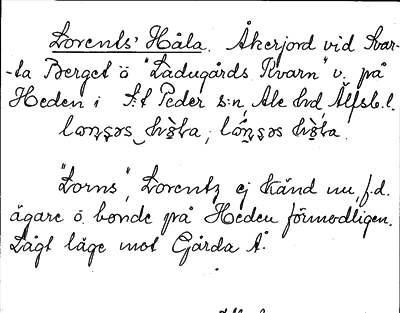 Lorents' Håla. Åkerjord vid Svar-
-ta Berget ö "Ladugårds Kvarn" v. på
Heden i S:t Peder s:n, Ale hd, Älfsb.l.
"Lorns", Lorentz ej känd nu, f.d.
ägare o. bonde på Heden förmodligen.
Lågt läge mot Gårda Å.